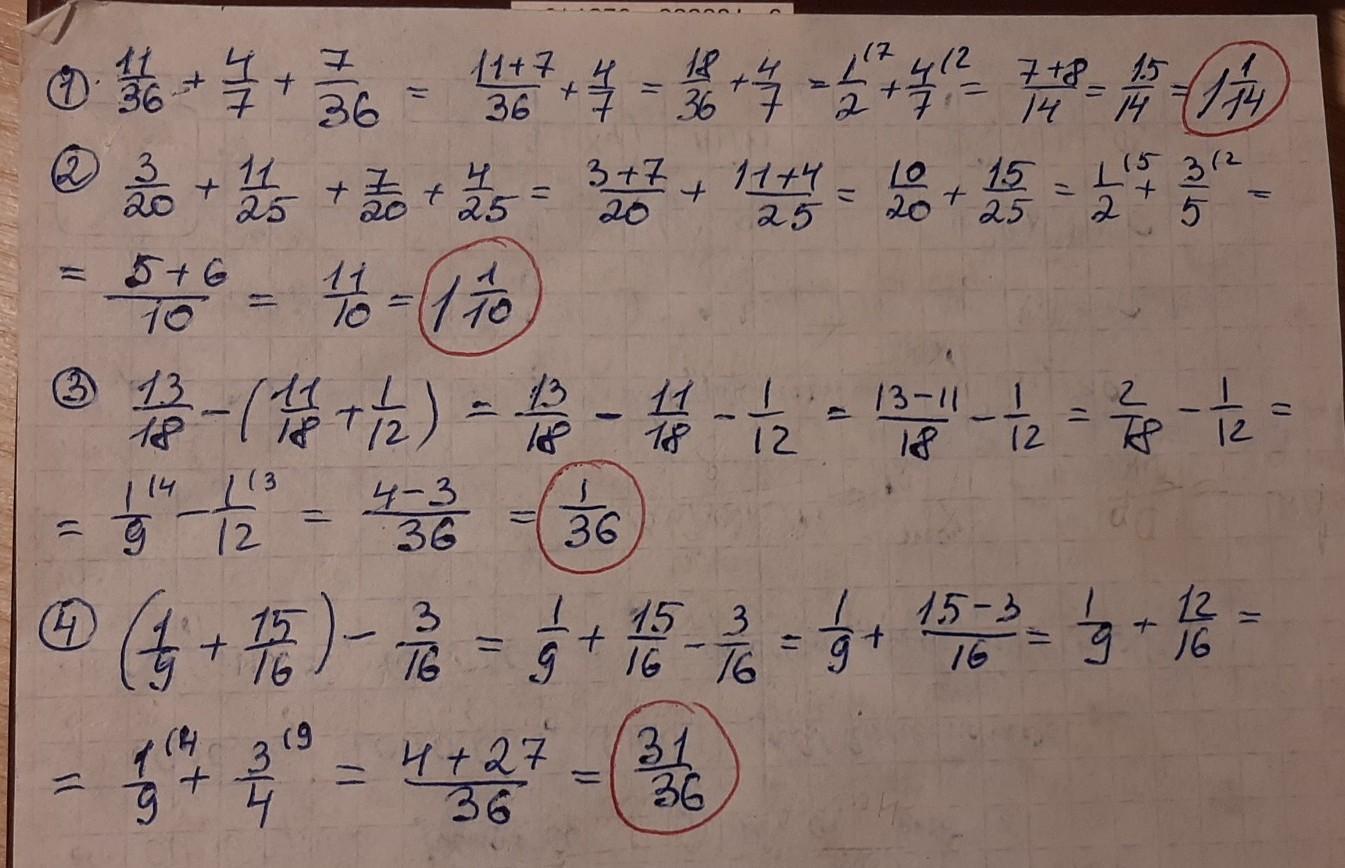 ① 11/36 + 4/7 + 7/36 = (11+7)/36 + 4/7 = 18/36 + 4/7 = 1/2 (7 + 4/7 (2 = (7+8)/14 = 15/14 = 1 1/14
② 3/20 + 11/25 + 7/20 + 4/25 = (3+7)/20 + (11+4)/25 = 10/20 + 15/25 = 1/2 (5 + 3/5 (2 =
= (5+6)/10 = 11/10 = 1 1/10
③ 13/18 - (11/18 + 1/12) = 13/18 - 11/18 - 1/12 = (13-11)/18 - 1/12 = 2/18 - 1/12 =
= 1/9 (4 - 1/12 (3 = (4-3)/36 = 1/36
④ (1/9 + 15/16) - 3/16 = 1/9 + 15/16 - 3/16 = 1/9 + (15-3)/16 = 1/9 + 12/16 =
= 1/9 (4 + 3/4 (9 = (4+27)/36 = 31/36